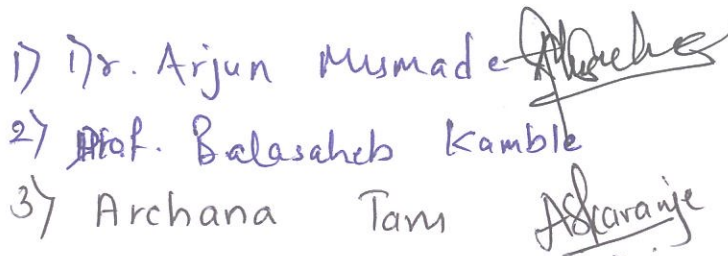 1) Dr. Arjun Musmade
2) Prof. Balasaheb Kamble
3) Archana Tam ASKaranje